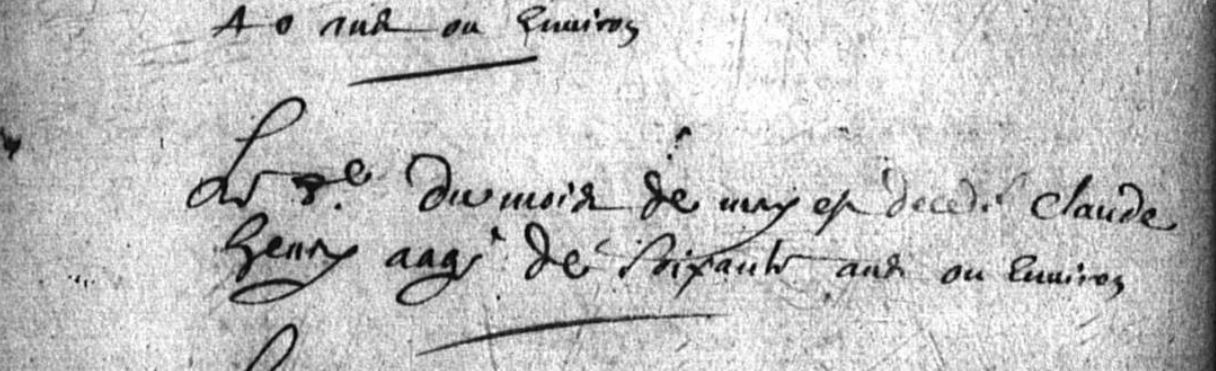 40 ans ou Enuiron
Le 8.e du mois de may est decedé claude
henry aagé de soixante ans ou Enuiron